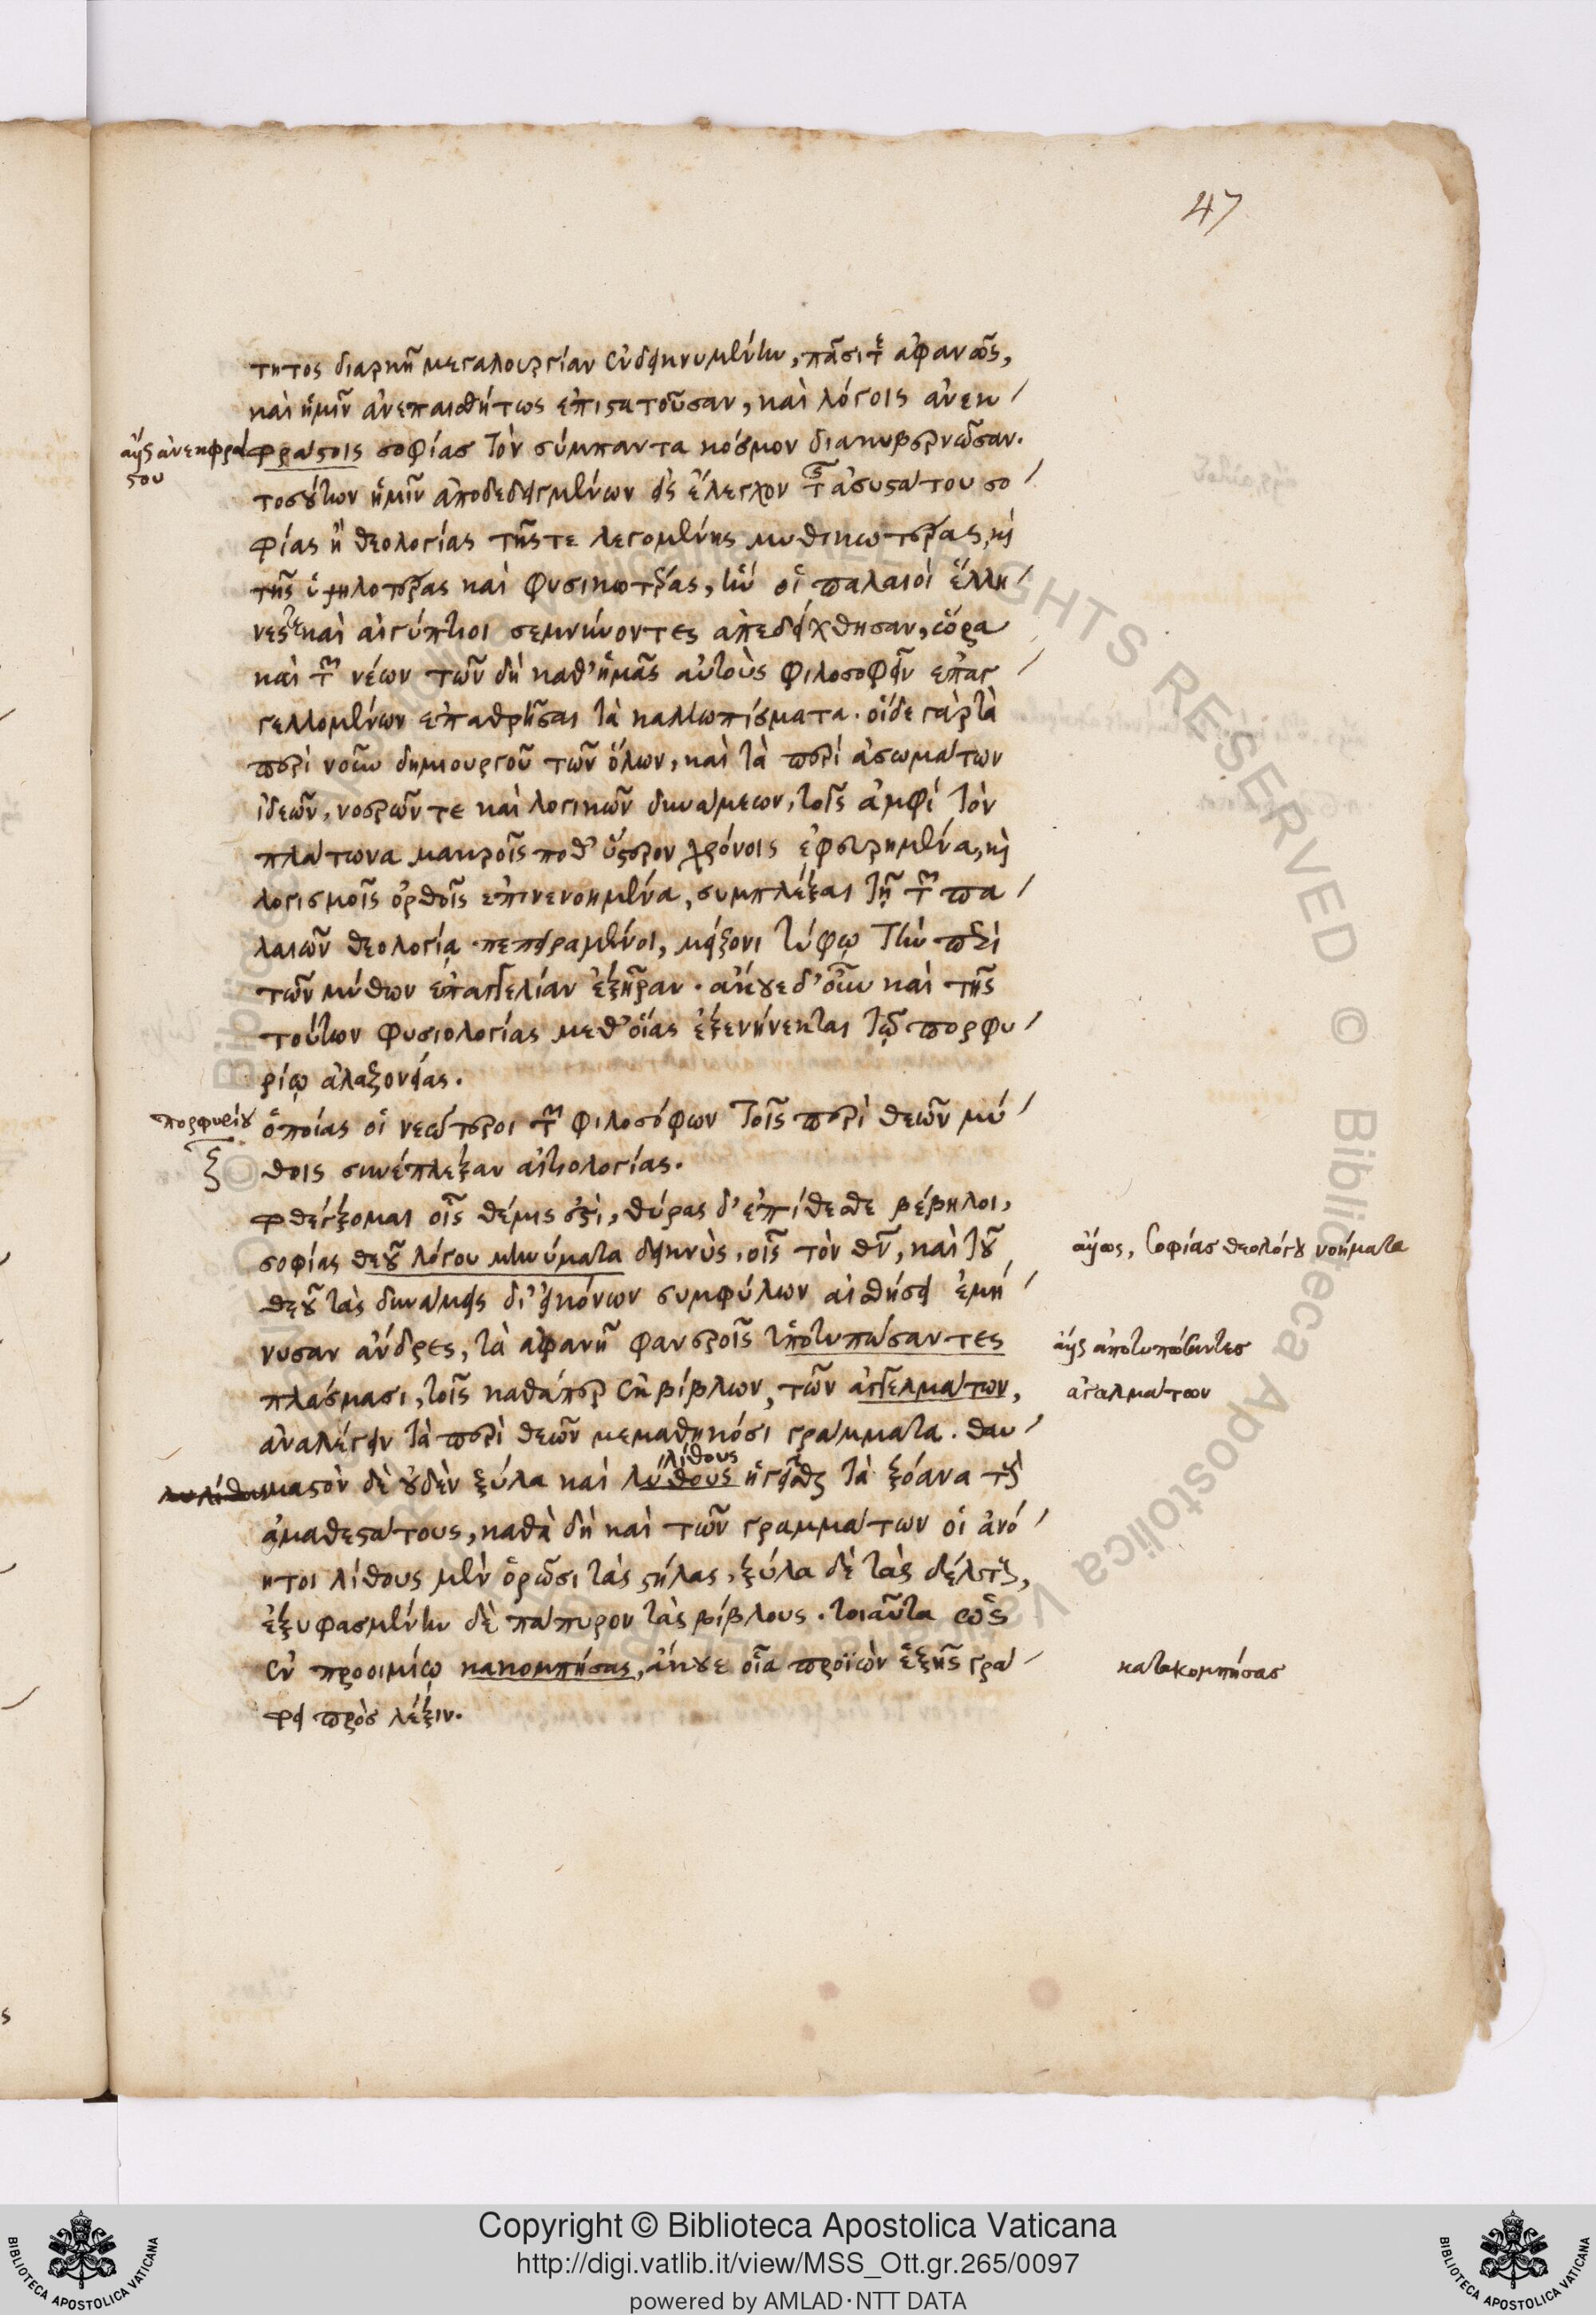 47
τητος διαρκῆ μεγαλουργίαν ἐνδεικνυμένην, πᾶσί τε ἀφανῶς,
καὶ ἡμῖν ἀνεπαισθήτως ἐπιστατοῦσαν, καὶ λόγοις ἀνεκ
φράστοις σοφίας τὸν σύμπαντα κόσμον διακυβερνῶσαν.
ἀνεκφρά
στου
τοσούτων ἡμῖν ἀποδεδειγμένων εἰς ἔλεγχον τῆς ἀσυστάτου σο
φίας ἢ θεολογίας τῆς τε λεγομένης μυθικωτέρας, καὶ
τῆς ὑψηλοτέρας καὶ φυσικωτέρας, ἣν οἱ παλαιοὶ ἕλλη
νές τε καὶ αἰγύπτιοι σεμνύνοντες ἀπεδείχθησαν, ὥρα
καὶ τῶν νέων τῶν δὴ καθ' ἡμᾶς αὐτοὺς φιλοσοφεῖν ἐπαγ
γελλομένων ἐπαθρῆσαι τὰ καλλωπίσματα. οἵδε γὰρ τὰ
περὶ νοῦ δημιουργοῦ τῶν ὅλων, καὶ τὰ περὶ ἀσωμάτων
ἰδεῶν, νοερῶν τε καὶ λογικῶν δυνάμεων, τοῖς ἀμφὶ τὸν
πλάτωνα μακροῖς ποθ' ὕστερον χρόνοις ἐφευρημένα, καὶ
λογισμοῖς ὀρθοῖς ἐπινενοημένα, συμπλέξαι τῇ τῶν πα
λαιῶν θεολογίᾳ πεπειραμένοι, μείζονι τύφῳ τὴν περὶ
τῶν μύθων ἐπαγγελίαν ἐξῆραν. ἄκουε δ' οὖν καὶ τῆς
τούτων φυσιολογίας μεθ' οἵας ἐξενήνεκται τῷ πορφυ
ρίῳ ἀλαζονείας.
πορφυρίου
ὁποίας οἱ νεώτεροι τῶν φιλοσόφων τοῖς περὶ θεῶν μύ
θοις συνέπλεξαν αἰτιολογίας.
φθέγξομαι οἷς θέμις ἐστί, θύρας δ' ἐπίθεσθε βέβηλοι,
σοφίας θεοῦ λόγου μηνύματα δεικνὺς, οἷς τὸν θν̅, καὶ τοῦ
ἄλλως, σοφίας θεολόγου νοήματα
θεοῦ τὰς δυνάμεις δι' εἰκόνων συμφύλων αἰσθήσει ἐμή
νυσαν ἄνδρες, τὰ ἀφανῆ φανεροῖς ὑποτυπώσαντες
ἀποτυπώσαντες
πλάσμασι, τοῖς καθάπερ ἐκ βίβλων, τῶν ἀγγελμάτων,
ἀγαλμάτων
ἀναλέγειν τὰ περὶ θεῶν μεμαθηκόσι γράμματα. θαυ
μαστὸν δὲ οὐδὲν ξύλα καὶ λύθους ἡγεῖσθαι τὰ ξόανα τοὺς
λίθους
ἀμαθεστάτους, καθὰ δὴ καὶ τῶν γραμμάτων οἱ ἀνό
ητοι λίθους μὲν ὁρῶσι τὰς στήλας, ξύλα δὲ τὰς δέλτους,
ἐξυφασμένην δὲ πάπυρον τὰς βίβλους. τοιαῦτα ὡς
ἐν προοιμίῳ κακομπήσας, ἄκουε οἷα προϊὼν ἑξῆς γρά
κατακομπήσας
φει πρὸς λέξιν.
© Biblioteca Apostolica Vaticana
ALL RIGHTS RESERVED
Copyright © Biblioteca Apostolica Vaticana
http://digi.vatlib.it/view/MSS_Ott.gr.265/0097
powered by AMLAD·NTT DATA
BIBLIOTECA APOSTOLICA VATICANA
BIBLIOTECA APOSTOLICA VATICANA